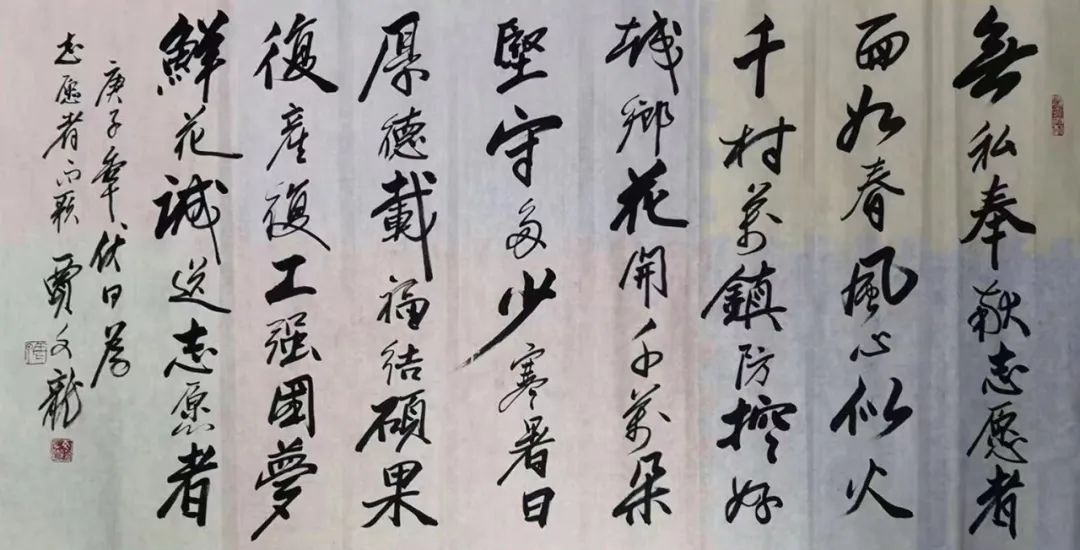 無私奉献志愿者
面如春風心似火
千村萬鎮防控好
城鄉花開千萬朵
堅守多少寒暑日
厚德載福结碩果
復産復工强國夢
鮮花誠送志愿者
庚子年伏日為
志愿者而題 賈文龍